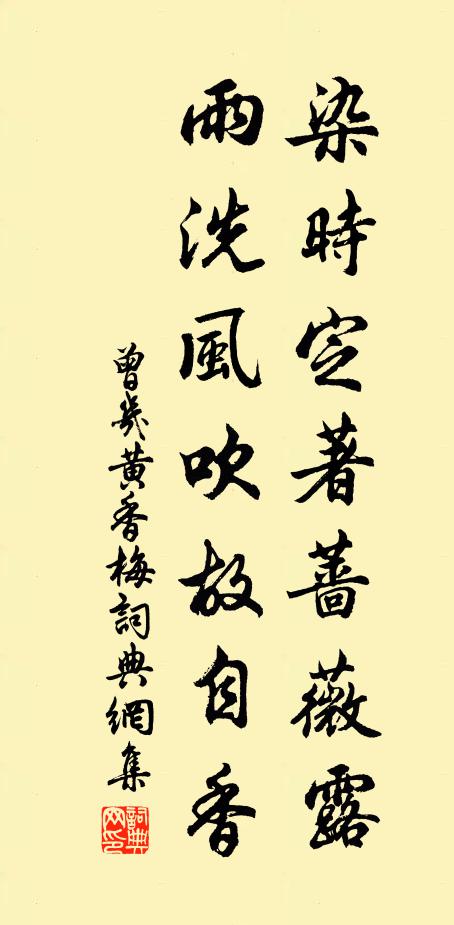 染時定著薔薇露
雨洗風吹故自香
曾幾黃香梅詞典網集
詞典网印